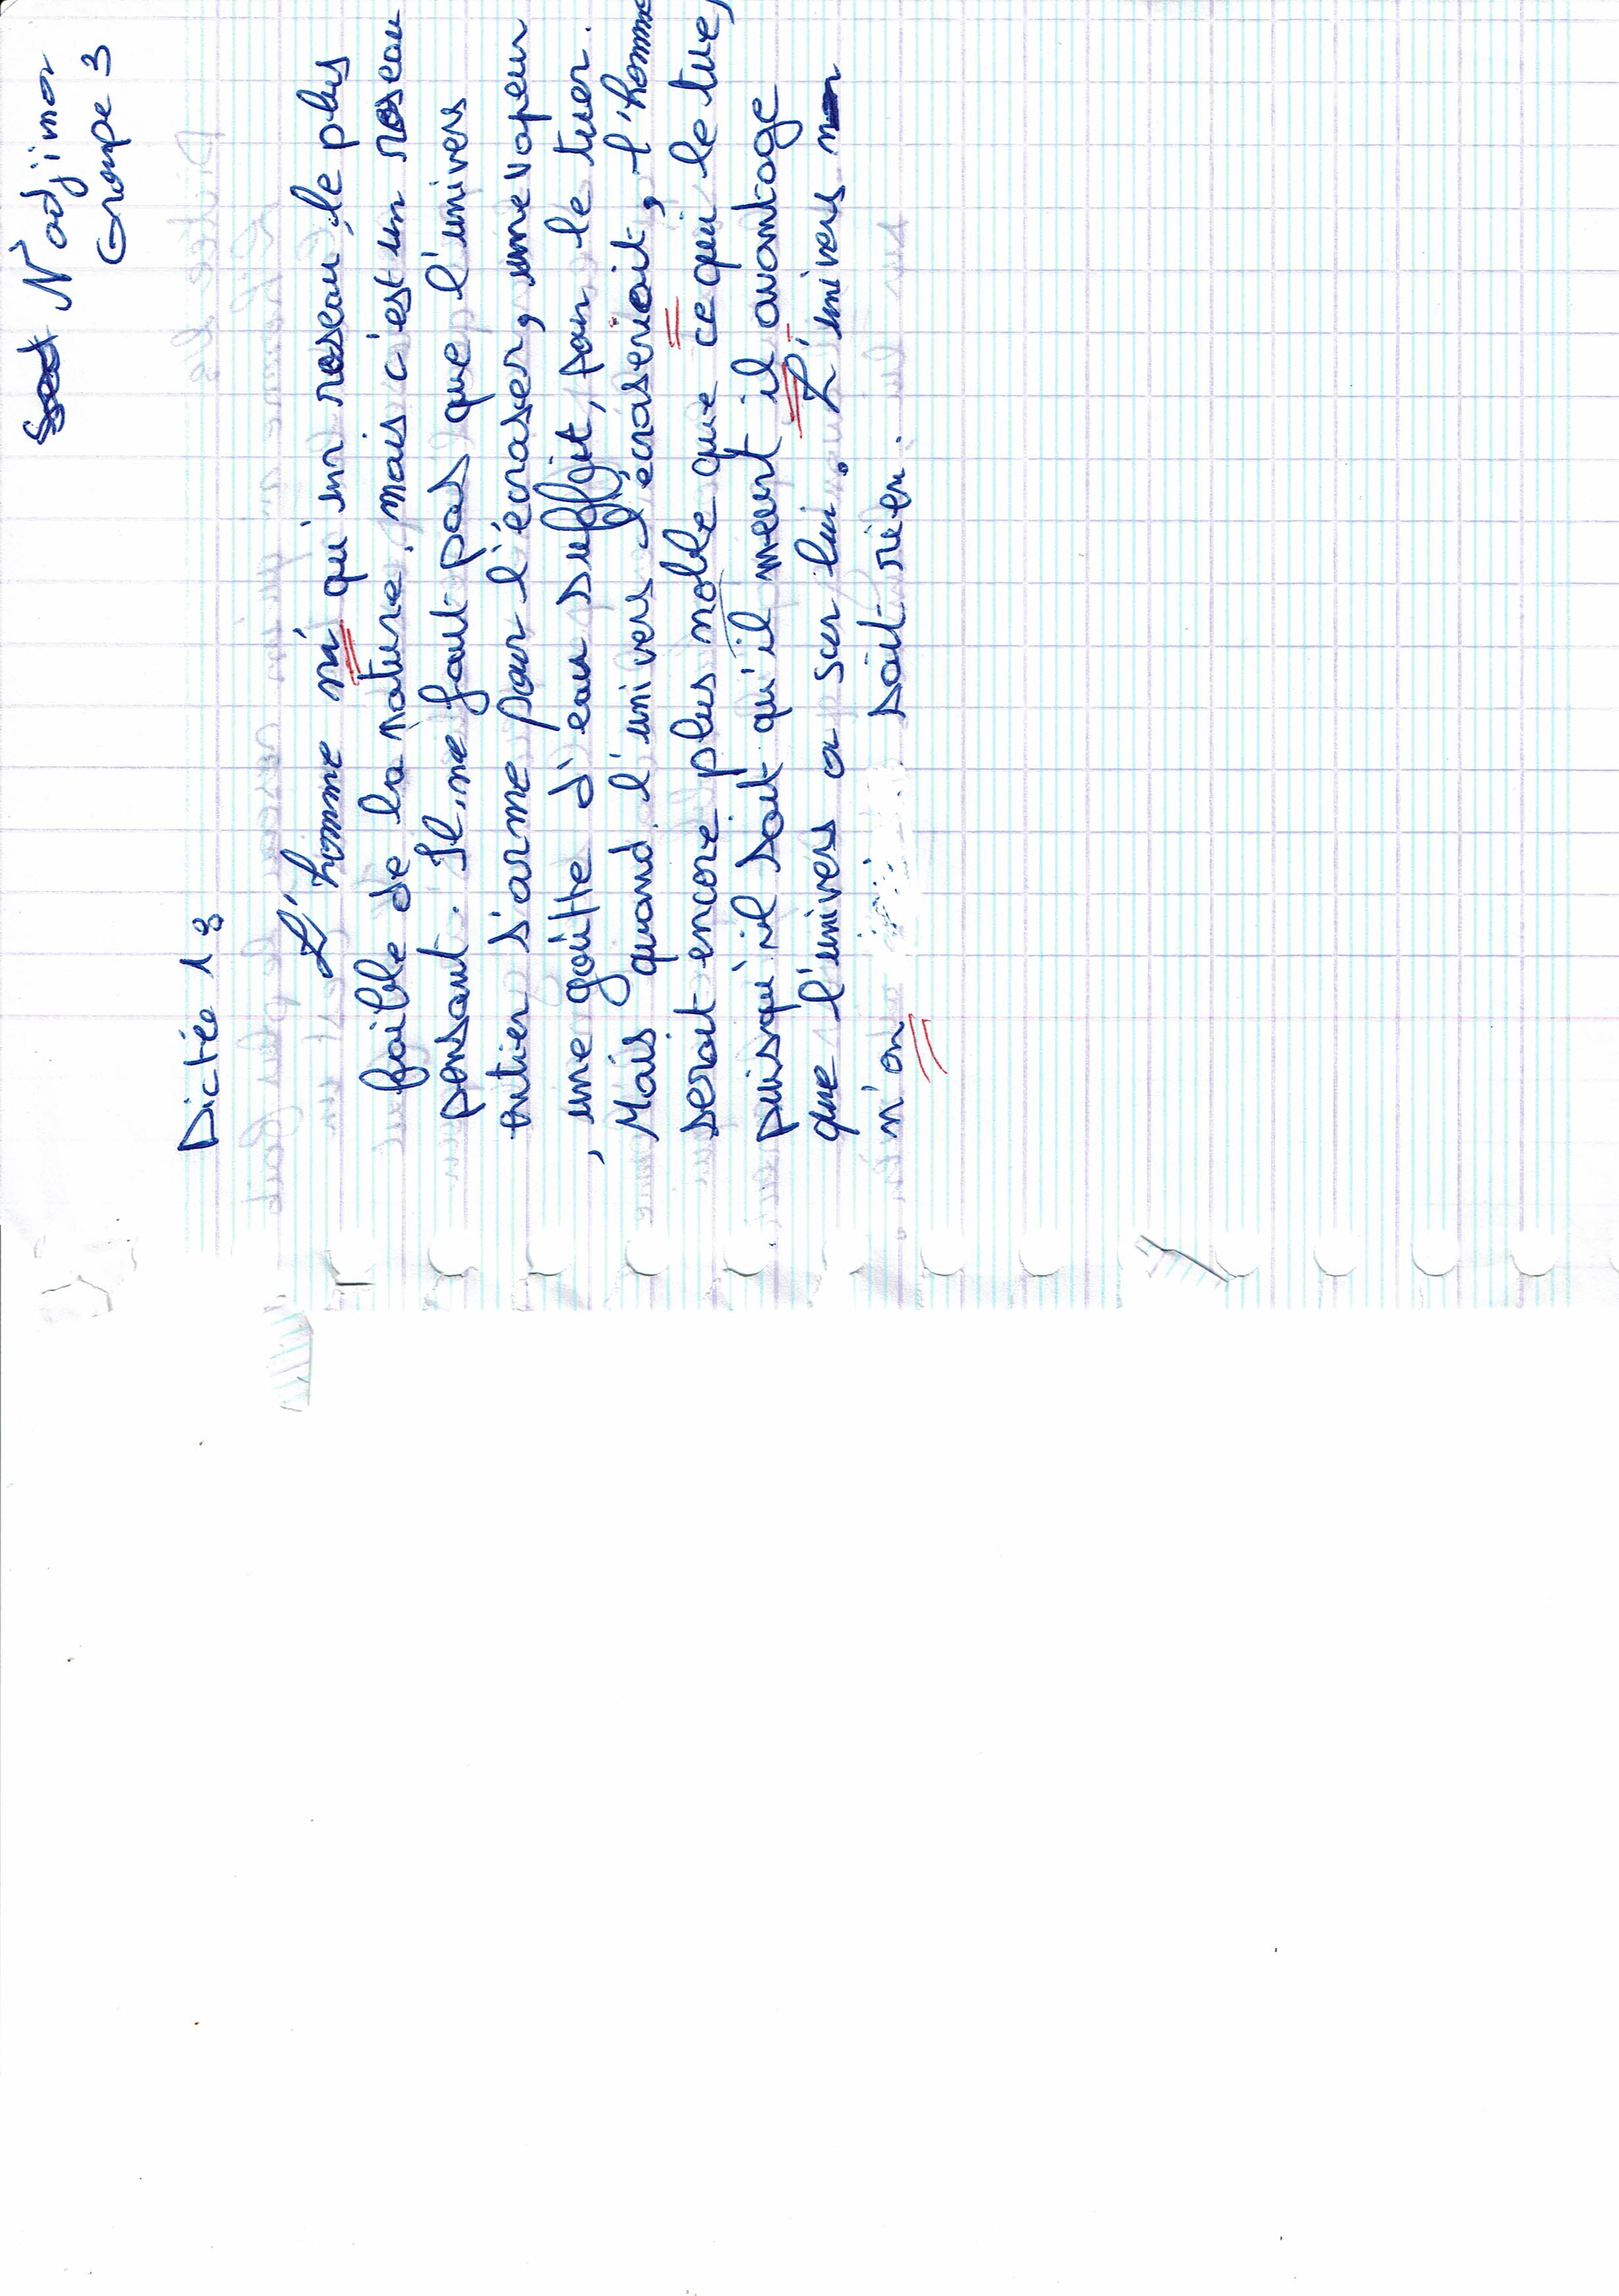 Nadjima
Groupe 3
Dictée 1 :
L'homme ni qu'un roseau, le plus
faible de la nature, mais c'est un roseau
pensant. Il ne faut pas que l'univers
entier s'arme pour l'écraser, une vapeur
, une goûtte d'eau suffit, pour le tuer.
Mais quand l'univers l'écraseriait, l'homme
serait encore plus noble que ce qui le tue,
puisqu'il sait qu'il meurt il avantage
que l'univers a sur lui. L'univers
n'on sait rien.